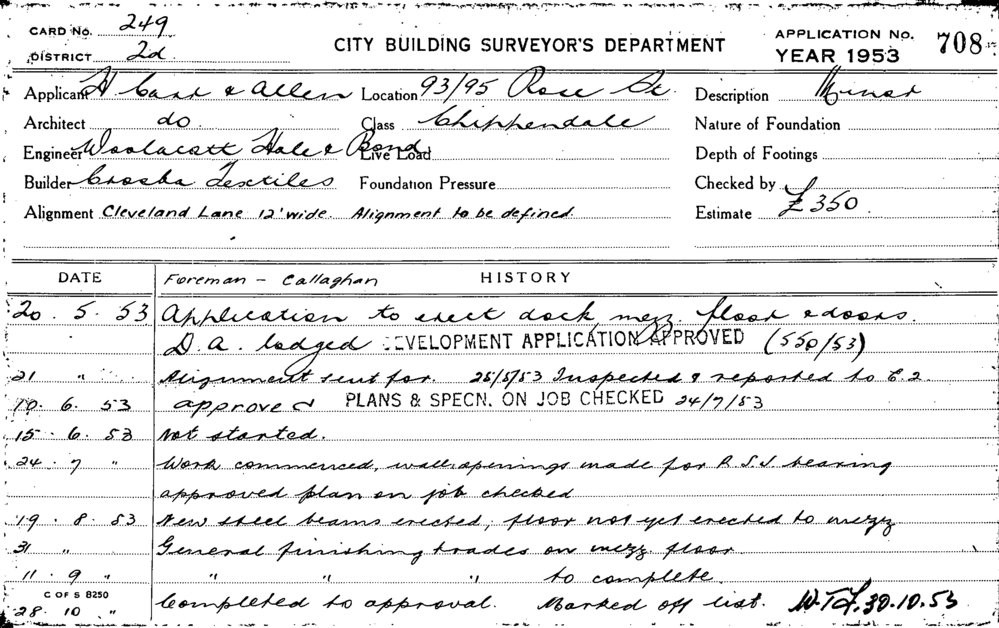 CARD No. 249
DISTRICT 2d.
CITY BUILDING SURVEYOR'S DEPARTMENT
APPLICATION No. 708
YEAR 1953
Applicant H Carr & Allen Location 93/95 Rose St. Description Minor
Architect do. Class Chippendale Nature of Foundation
Engineer Woolacott Hale & Bond Live Load Depth of Footings
Builder Crosba Textiles Foundation Pressure Checked by
Alignment Cleveland Lane 12' wide. Alignment to be defined. Estimate £350.
DATE Foreman - Callaghan HISTORY
20. 5. 53 Application to erect dock, mezz. floor & doors.
D.A. lodged DEVELOPMENT APPLICATION APPROVED (550/53)
21 " Alignment sent for. 25/5/53 Inspected & reported to C.2.
10. 6. 53 approved PLANS & SPECN. ON JOB CHECKED 24/7/53
15. 6. 53 Not started.
24. 7 " Work commenced, wall openings made for R.S.J bearing
approved plan on job checked
19. 8. 53 New steel beams erected; floor not yet erected to mezz
31 " General finishing trades on mezz. floor
11. 9 " " " " to complete.
C OF S 8250
28. 10 " Completed to approval. Marked off list. 30.10.53